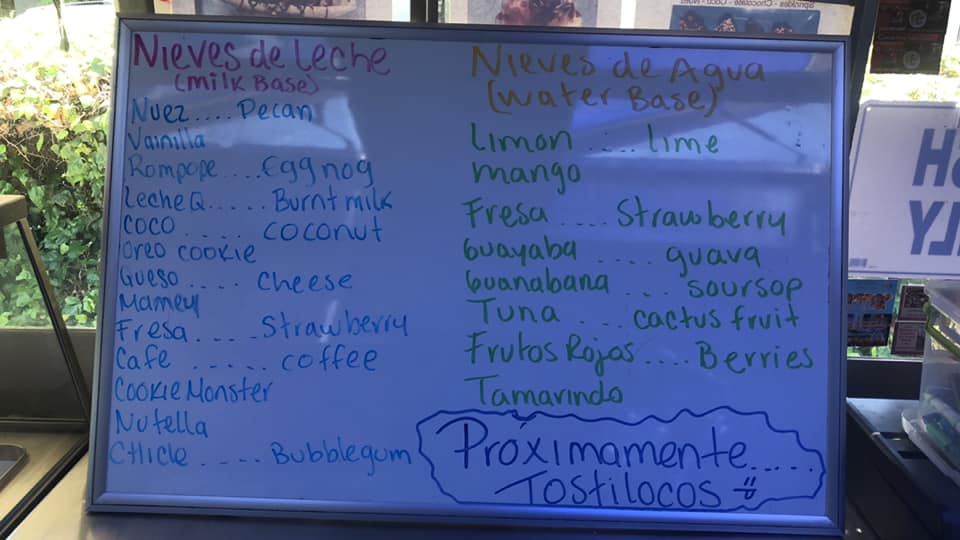 Nieves de Leche
(Milk Base)
Nuez.... Pecan
Vainilla
Rompope.... Eggnog
Leche Q..... Burnt milk
Coco ..... coconut
Oreo cookie
Gueso .... Cheese
Mamey
Fresa..... Strawberry
Cafe ...... coffee
Cookie Monster
Nutella
Chicle ..... Bubblegum
Nieves de Agua
(Water Base)
Limon ..... lime
mango
Fresa .... Strawberry
Guayaba .... guava
Guanabana .... soursop
Tuna .... cactus fruit
Frutos Rojos.... Berries
Tamarindo
Próximamente.....
Tostilocos